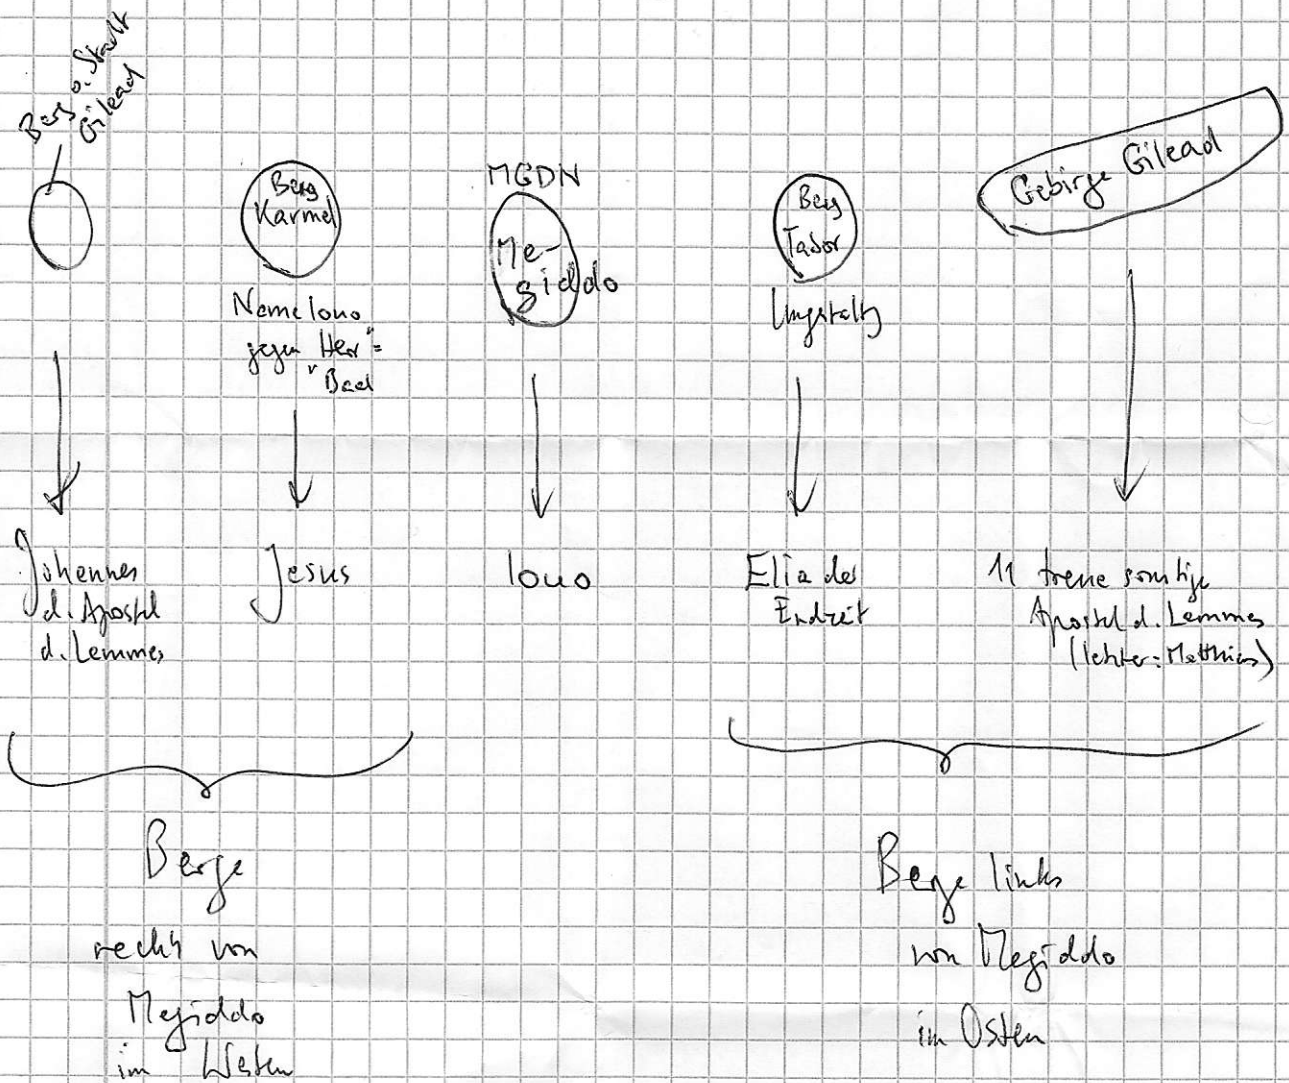 Berg o. Stadt
Gilead
Berg
Karmel
Name Iouo
gegen "Herr" =
"Baal
MGDN
Me-
giddo
Berg
Tabor
Umgestaltg
Gebirge Gilead
Johannes
d. Apostel
d. Lammes
Jesus
Iouo
Elia der
Endzeit
11 treue sonstige
Apostel d. Lammes
(letzter: Matthias)
Berge
rechts von
Megiddo
im Westen
Berge links
von Megiddo
im Osten